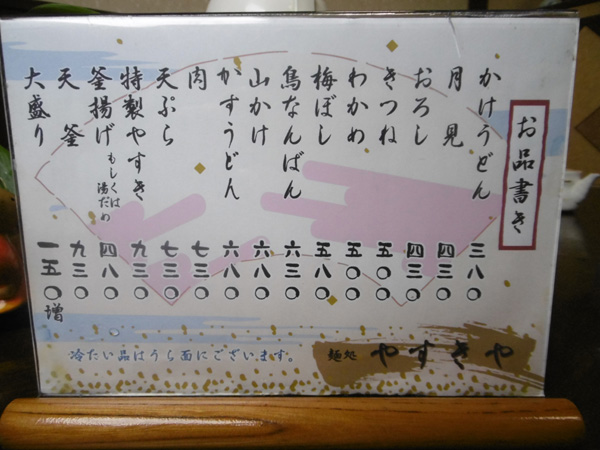 お品書き
かけうどん 三八〇
月見 四三〇
おろし 四三〇
きつね 五〇〇
わかめ 五〇〇
梅ぼし 五八〇
鳥なんばん 六三〇
山かけ 六八〇
かすうどん 六八〇
肉 七三〇
天ぷら 七三〇
特製やすき 九三〇
釜揚げ もしくは湯だめ 四八〇
天釜 九三〇
大盛り 一五〇増
冷たい品はうら面にございます。
麺処 やすきや